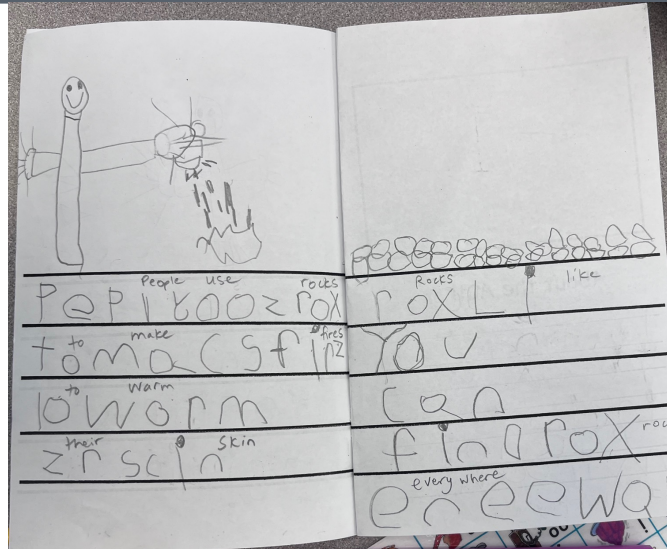 People use rocks
PePl yooz rox
to make fires
to mac sfirz
to warm
to worm
their skin
zr scin
Rocks like
rox L I
You
can
find rox roc
every where
ereewa